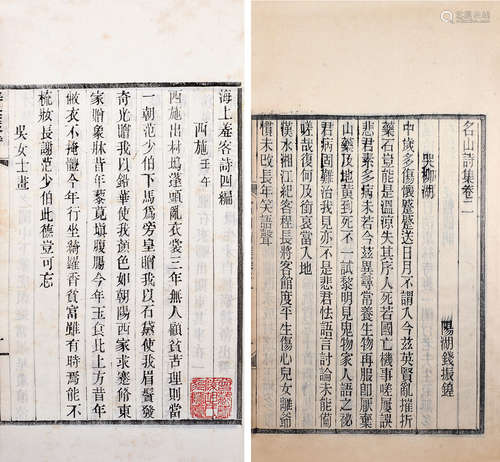 名山詩集卷二
陽湖錢振鍠
哭柳湖
中歲多傷懷蹙蹙送日月不謂入今茲英賢亂摧折
藥石豈能慎溫涼失其序人死若國亡機事嗟屢誤
悲君素多病未若今茲異尋常養生物再服卽厭棄
山藥及地黃到死不一試黎明見鬼物家人語之祕
君病固難治我見亦不是悲君怯語言討論未能備
嗟哉復何及銜哀當入地
漢水湘江紀客程長將客館度平生傷心兒女離爺
慣未改長年笑語聲
海上庵客詩四編
西施 壬午
西施出村塢蓬頭亂衣裳三年無人顧貧苦理則當
一朝范少伯馬爲旁皇贈我以石黛使我眉鬢發
奇光贈我以鉛華使我顏色如朝陽西家求蹇脩東
家贈象牀昔年藜莧塡腹腸今年玉食比上方昔年
敝衣不掩體今年行坐綺羅香貧富雖有時焉能不
梳妝長謝范少伯此德豈可忘
吳女士畫